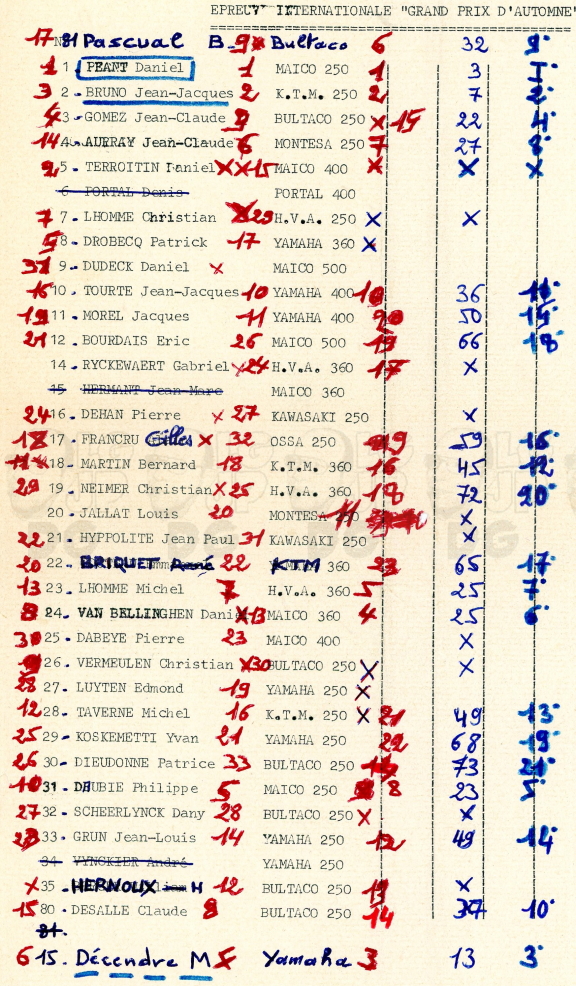 EPREUVE INTERNATIONALE "GRAND PRIX D'AUTOMNE"
17 N° 81 Pascual B. 9 x Bultaco 6 32 9°
1 1. PEANT Daniel 1 MAICO 250 1 3 1°
3 2. BRUNO Jean-Jacques 2 K.T.M. 250 2 7 2°
3. GOMEZ Jean-Claude BULTACO 250 x 15 22 4°
14 4. AURRAY Jean-Claude 6 MONTESA 250 7 27 8°
2 5. TERROITIN Daniel X X 15 MAICO 400 x X X
6. PORTAL Denis PORTAL 400
7 7. LHOMME Christian 29 H.V.A. 250 X X
5 8. DROBECQ Patrick 17 YAMAHA 360 X
9. DUDECK Daniel x MAICO 500
16 10. TOURTE Jean-Jacques 10 YAMAHA 400 10 36 11°
19 11. MOREL Jacques 11 YAMAHA 400 50 15°
21 12. BOURDAIS Eric 26 MAICO 500 19 66 18°
14. RYCKEWAERT Gabriel x 24 H.V.A. 360 17 X
15. HERMANT Jean-Marc MAICO 360
24 16. DEHAN Pierre x 27 KAWASAKI 250 x
18 17. FRANCRU Gilles x 32 OSSA 250 19 59 16°
18. MARTIN Bernard 18 K.T.M. 360 16 45 12°
29 19. NEIMER Christian X 25 H.V.A. 360 18 72 20°
20. JALLAT Louis 20 MONTESA 11 X
22 21. HYPPOLITE Jean Paul 31 KAWASAKI 250 X
20 22. BRIQUET René 22 KTM 360 23 65 17°
13 23. LHOMME Michel 7 H.V.A. 360 5 25 7°
24. VAN BELLINGHEN Daniel x 13 MAICO 360 4 25 6°
25. DABEYE Pierre 23 MAICO 400 X
26. VERMEULEN Christian X 30 BULTACO 250 X X
28 27. LUYTEN Edmond 19 YAMAHA 250 x
12 28. TAVERNE Michel 16 K.T.M. 250 x 21 49 13°
25 29. KOSKEMETTI Yvan 21 YAMAHA 250 22 68 19°
26 30. DIEUDONNE Patrice 33 BULTACO 250 73 21°
10 31. DAUBIE Philippe 5 MAICO 250 8 23 5°
27 32. SCHEERLYNCK Dany 28 BULTACO 250 x x
33. GRUN Jean-Louis 14 YAMAHA 250 12 49 14°
34. VYNCKIER André YAMAHA 250
x 35. HERNOUX H 12 BULTACO 250 13 X
15 80. DESALLE Claude 8 BULTACO 250 14 37 10°
81.
6 15. Décendre M 4 Yamaha 3 13 3°